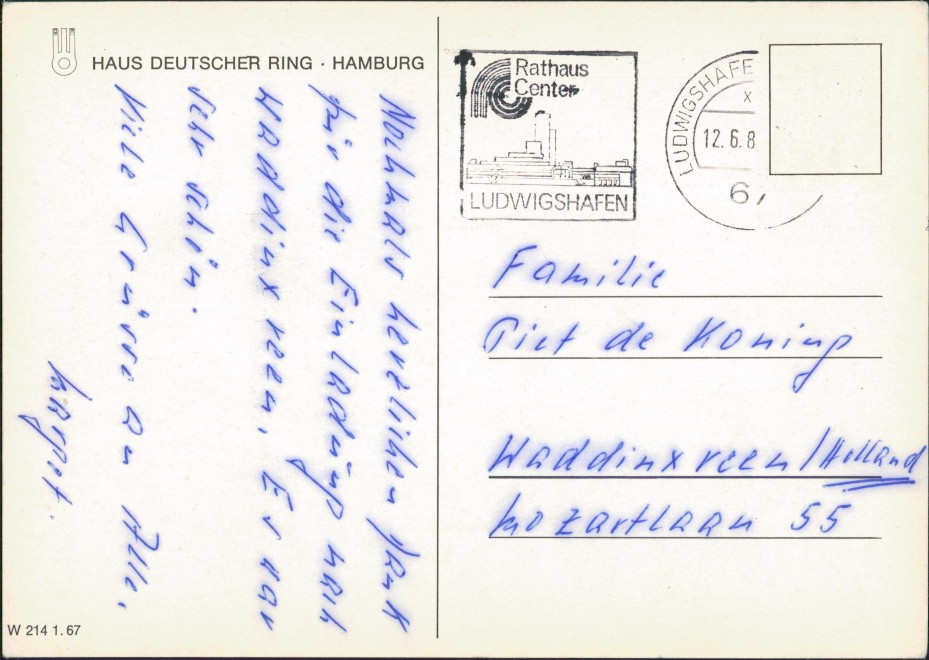 HAUS DEUTSCHER RING · HAMBURG
Nochmals herzlichen Dank
für die Einladung nach
Waddinxveen. Es war
sehr schön.
Viele Grüsse an Alle,
W 214 1.67
Rathaus
Center
LUDWIGSHAFEN
LUDWIGSHAFE
x
12.6.8
67
Familie
Piet de Koning
Waddinxveen/Holland
Mozartlaan 55